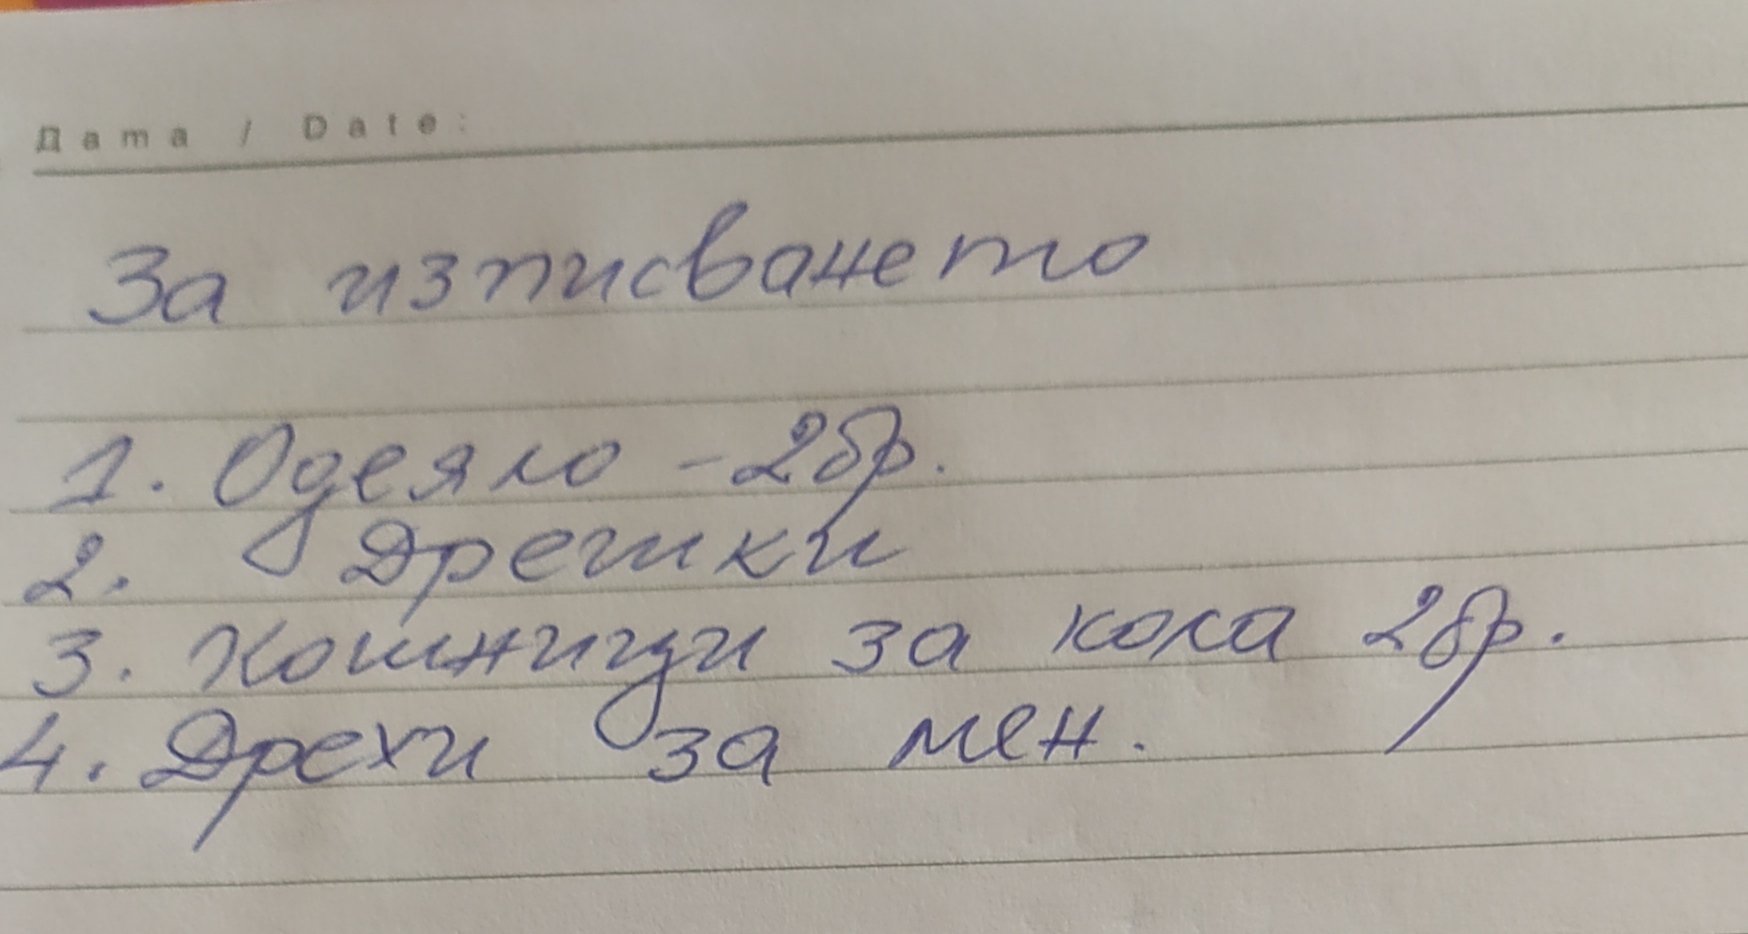 Дата / Date:
За изписването
1. Одеяло - 2бр.
2. Дрешки
3. Кошници за кола 2бр.
4. Дрехи за мен.